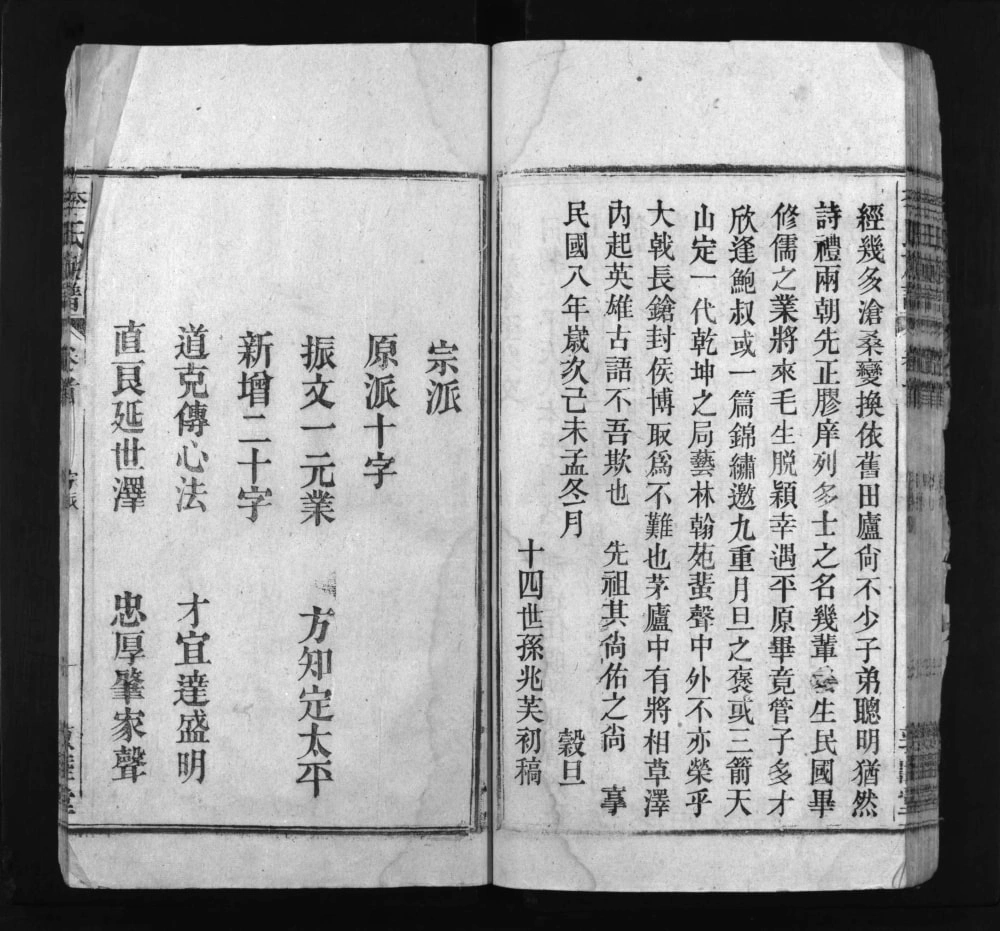 經幾多滄桑變換依舊田廬尙不少子弟聰明猶然
詩禮兩朝先正膠庠列多士之名幾輩 生民國畢
修儒之業將來毛生脫穎幸遇平原畢竟管子多才
欣逢鮑叔或一篇錦繡邀九重月旦之褒或三箭天
山定一代乾坤之局藝林翰苑蜚聲中外不亦榮乎
大戟長鎗封侯博取爲不難也茅廬中有將相草澤
內起英雄古語不吾欺也 先祖其尙佑之尙 享
民國八年歲次己未孟冬月 穀旦
十四世孫兆芙初稿
宗派
原派十字
振文一元業 方知定太平
新增二十字
道克傳心法 才宜達盛明
直良延世澤 忠厚肇家聲
李氏族譜 卷首 宗派